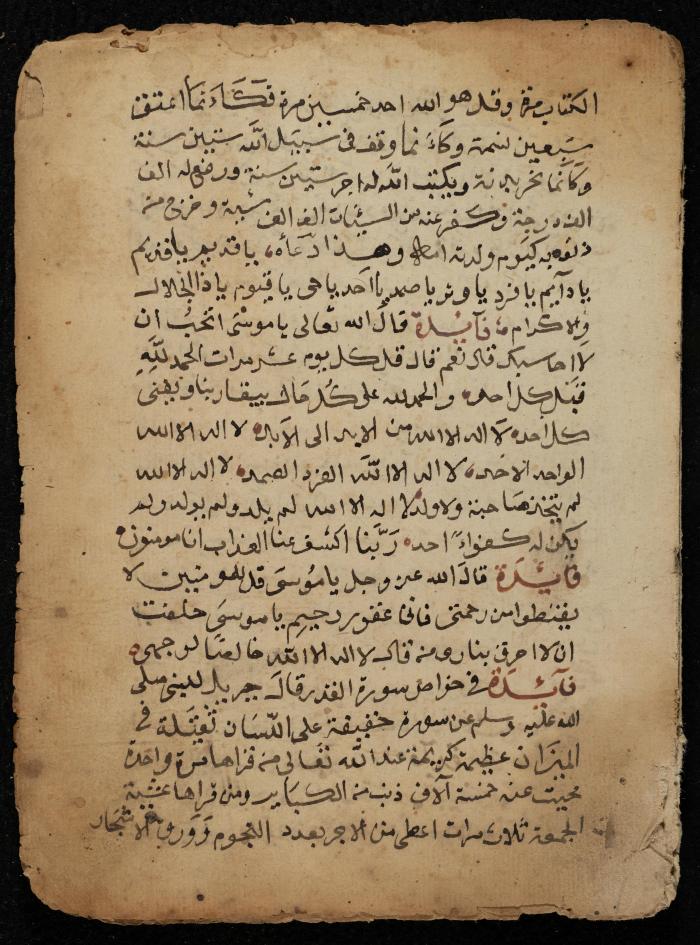 الكتاب مرة وقل هو الله احد خمسين مرة فكَاَنما اعتق
سبعين نسمة وكاَنما وقف فى سبيل الله ستين سنة
وكانما نحر بدنة ويكتب الله له اجر ستين سنة ورفع له الف
الف درجة وكفر عنه من السيئات الف الف سيئة وخرج من
ذنوبه كيوم ولدته امه وهذا دعاه يا قديم يا قديم
يا دآيم يا فرد يا وتر يا صمد يا احد يا حى يا قيوم يا ذا الجلال
والاكرام فآئدة قال الله تعالى يا موسى اتحب ان
لا احاسبك قال نعم قال قل كل يوم عشر مرات الحمد لله
قبل كل احد والحمد لله على كل حال يبقا ربنا ويفنى
كل احد لا اله الا الله من الابد الى الابد لا اله الا الله
الواحد الاحد لا اله الا الله الفرد الصمد لا اله الا الله
لم يتخذ صاحبة ولا ولدا لا اله الا الله لم يلد ولم يولد ولم
يكن له كفواً احد رَبَّنا اكشف عنا العذاب انا مومنون
فآئدة قال الله عز وجل يا موسى قل للمومنين لا
يقنطوا من رحمتى فانى غفور رحيم يا موسى حلفت
ان لا احرق بنار من قال لا اله الا الله خالصا لوجهى
فآئدة فى خواص سورة القدر قال جبريل للنبى صلى
الله عليه وسلم عن سورة خفيفة على اللسان ثقيلة فى
الميزان عظيمة كريمة عند الله تعالى من قراها مرة واحدة
محيت عنه خمسة آلاف ذنب من الكباير ومن قراها عشية
الجمعة ثلاث مرات اعطى من الاجر بعدد النجوم وورق الاشجار